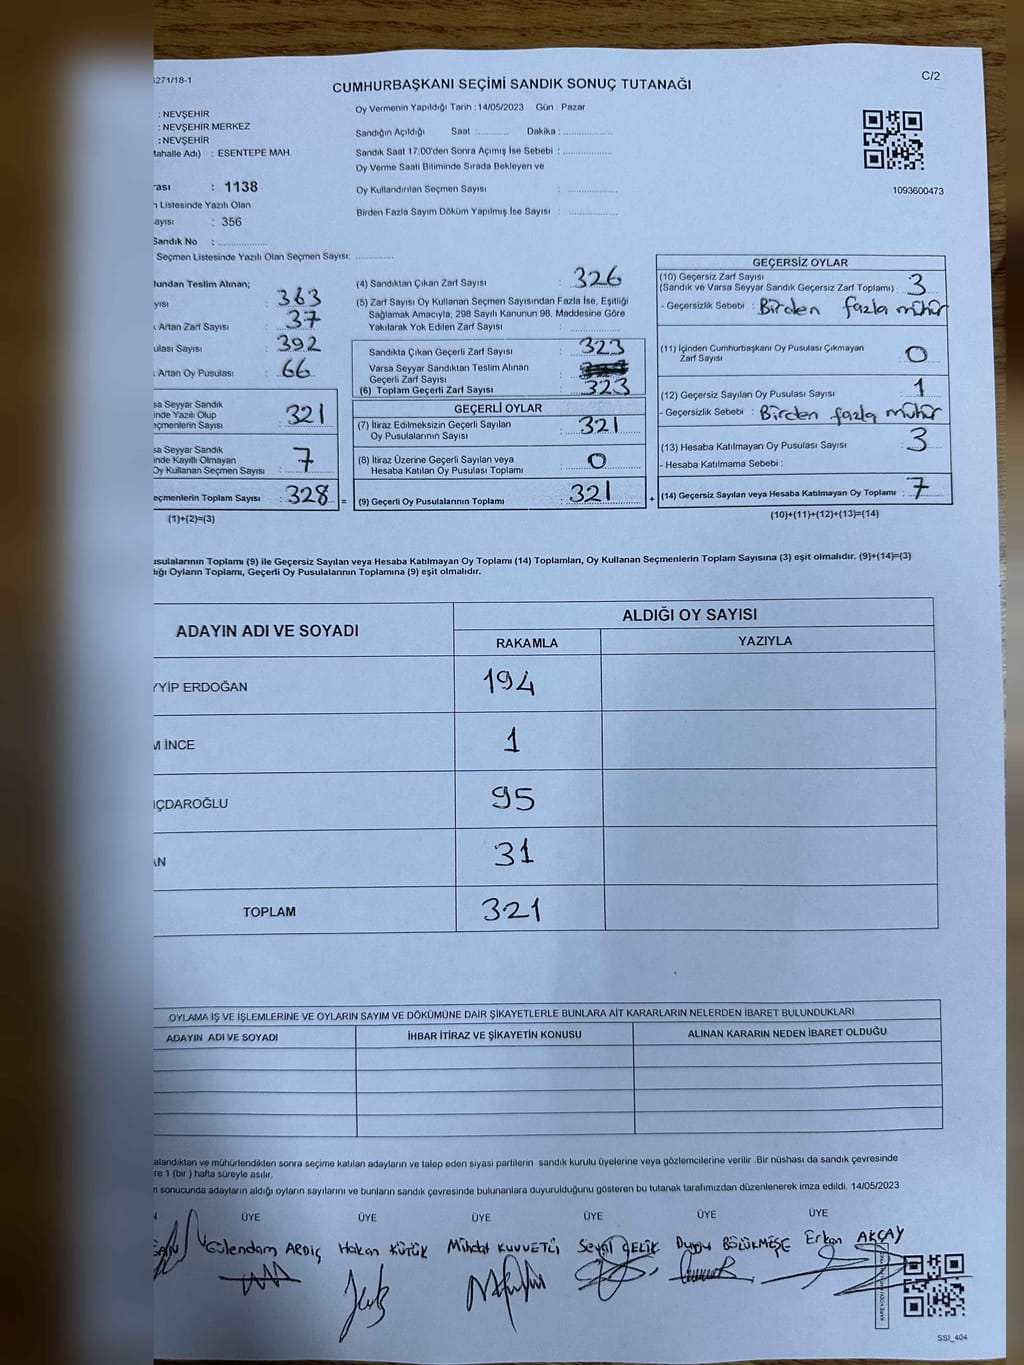 271/18-1
C/2
CUMHURBAŞKANI SEÇİMİ SANDIK SONUÇ TUTANAĞI
: NEVŞEHİR
: NEVŞEHİR MERKEZ
: NEVŞEHİR
Mahalle Adı) : ESENTEPE MAH.
ası : 1138
n Listesinde Yazılı Olan
ayısı : 356
Sandık No : ............
Seçmen Listesinde Yazılı Olan Seçmen Sayısı: ............
Oy Vermenin Yapıldığı Tarih : 14/05/2023 Gün : Pazar
Sandığın Açıldığı Saat :.......... Dakika : ...............
Sandık Saat 17:00'den Sonra Açımış İse Sebebi : ...............
Oy Verme Saati Bitiminde Sırada Bekleyen ve
Oy Kullandırılan Seçmen Sayısı : ...............
Birden Fazla Sayım Döküm Yapılmış İse Sayısı : ...............
1093600473
lundan Teslim Alınan;
yısı : 363
k Artan Zarf Sayısı : 37
ulası Sayısı : 392
k Artan Oy Pusulası : 66
sa Seyyar Sandık
inde Yazılı Olup
eçmenlerin Sayısı : 321
sa Seyyar Sandık
inde Kayıtlı Olmayan
Oy Kullanan Seçmen Sayısı : 7
eçmenlerin Toplam Sayısı : 328 =
(1)+(2)=(3)
(4) Sandıktan Çıkan Zarf Sayısı : 326
(5) Zarf Sayısı Oy Kullanan Seçmen Sayısından Fazla İse, Eşitliği
Sağlamak Amacıyla, 298 Sayılı Kanunun 98. Maddesine Göre
Yakılarak Yok Edilen Zarf Sayısı : ...............
Sandıkta Çıkan Geçerli Zarf Sayısı : 323
Varsa Seyyar Sandıktan Teslim Alınan
Geçerli Zarf Sayısı :
(6) Toplam Geçerli Zarf Sayısı : 323
GEÇERLİ OYLAR
(7) İtiraz Edilmeksizin Geçerli Sayılan
Oy Pusulalarının Sayısı : 321
(8) İtiraz Üzerine Geçerli Sayılan veya
Hesaba Katılan Oy Pusulası Toplamı : 0
(9) Geçerli Oy Pusulalarının Toplamı : 321 +
GEÇERSİZ OYLAR
(10) Geçersiz Zarf Sayısı
(Sandık ve Varsa Seyyar Sandık Geçersiz Zarf Toplamı) : 3
- Geçersizlik Sebebi : Birden fazla mühür
(11) İçinden Cumhurbaşkanı Oy Pusulası Çıkmayan
Zarf Sayısı : 0
(12) Geçersiz Sayılan Oy Pusulası Sayısı : 1
- Geçersizlik Sebebi : Birden fazla mühür
(13) Hesaba Katılmayan Oy Pusulası Sayısı : 3
- Hesaba Katılmama Sebebi :
(14) Geçersiz Sayılan veya Hesaba Katılmayan Oy Toplamı : 7
(10)+(11)+(12)+(13)=(14)
usulalarının Toplamı (9) ile Geçersiz Sayılan veya Hesaba Katılmayan Oy Toplamı (14) Toplamları, Oy Kullanan Seçmenlerin Toplam Sayısına (3) eşit olmalıdır. (9)+(14)=(3)
ığı Oyların Toplamı, Geçerli Oy Pusulalarının Toplamına (9) eşit olmalıdır.
ADAYIN ADI VE SOYADI
ALDIĞI OY SAYISI
RAKAMLA YAZIYLA
YYİP ERDOĞAN 194
M İNCE 1
IÇDAROĞLU 95
AN 31
TOPLAM 321
OYLAMA İŞ VE İŞLEMLERİNE VE OYLARIN SAYIM VE DÖKÜMÜNE DAİR ŞİKAYETLERLE BUNLARA AİT KARARLARIN NELERDEN İBARET BULUNDUKLARI
ADAYIN ADI VE SOYADI İHBAR İTİRAZ VE ŞİKAYETİN KONUSU ALINAN KARARIN NEDEN İBARET OLDUĞU
alandıktan ve mühürlendikten sonra seçime katılan adayların ve talep eden siyasi partilerin sandık kurulu üyelerine veya gözlemcilerine verilir .Bir nüshası da sandık çevresinde
re 1 (bir ) hafta süreyle asılır.
n sonucunda adayların aldığı oyların sayılarını ve bunların sandık çevresinde bulunanlara duyurulduğunu gösteren bu tutanak tarafımızdan düzenlenerek imza edildi. 14/05/2023
ÜYE ÜYE ÜYE ÜYE ÜYE ÜYE
Gülendam ARDIÇ Hakan KÜTÜK Mithat KUVVETLİ Seval ÇELİK Duygu BÖLÜKMEŞE Erkan AKÇAY
SSI_404